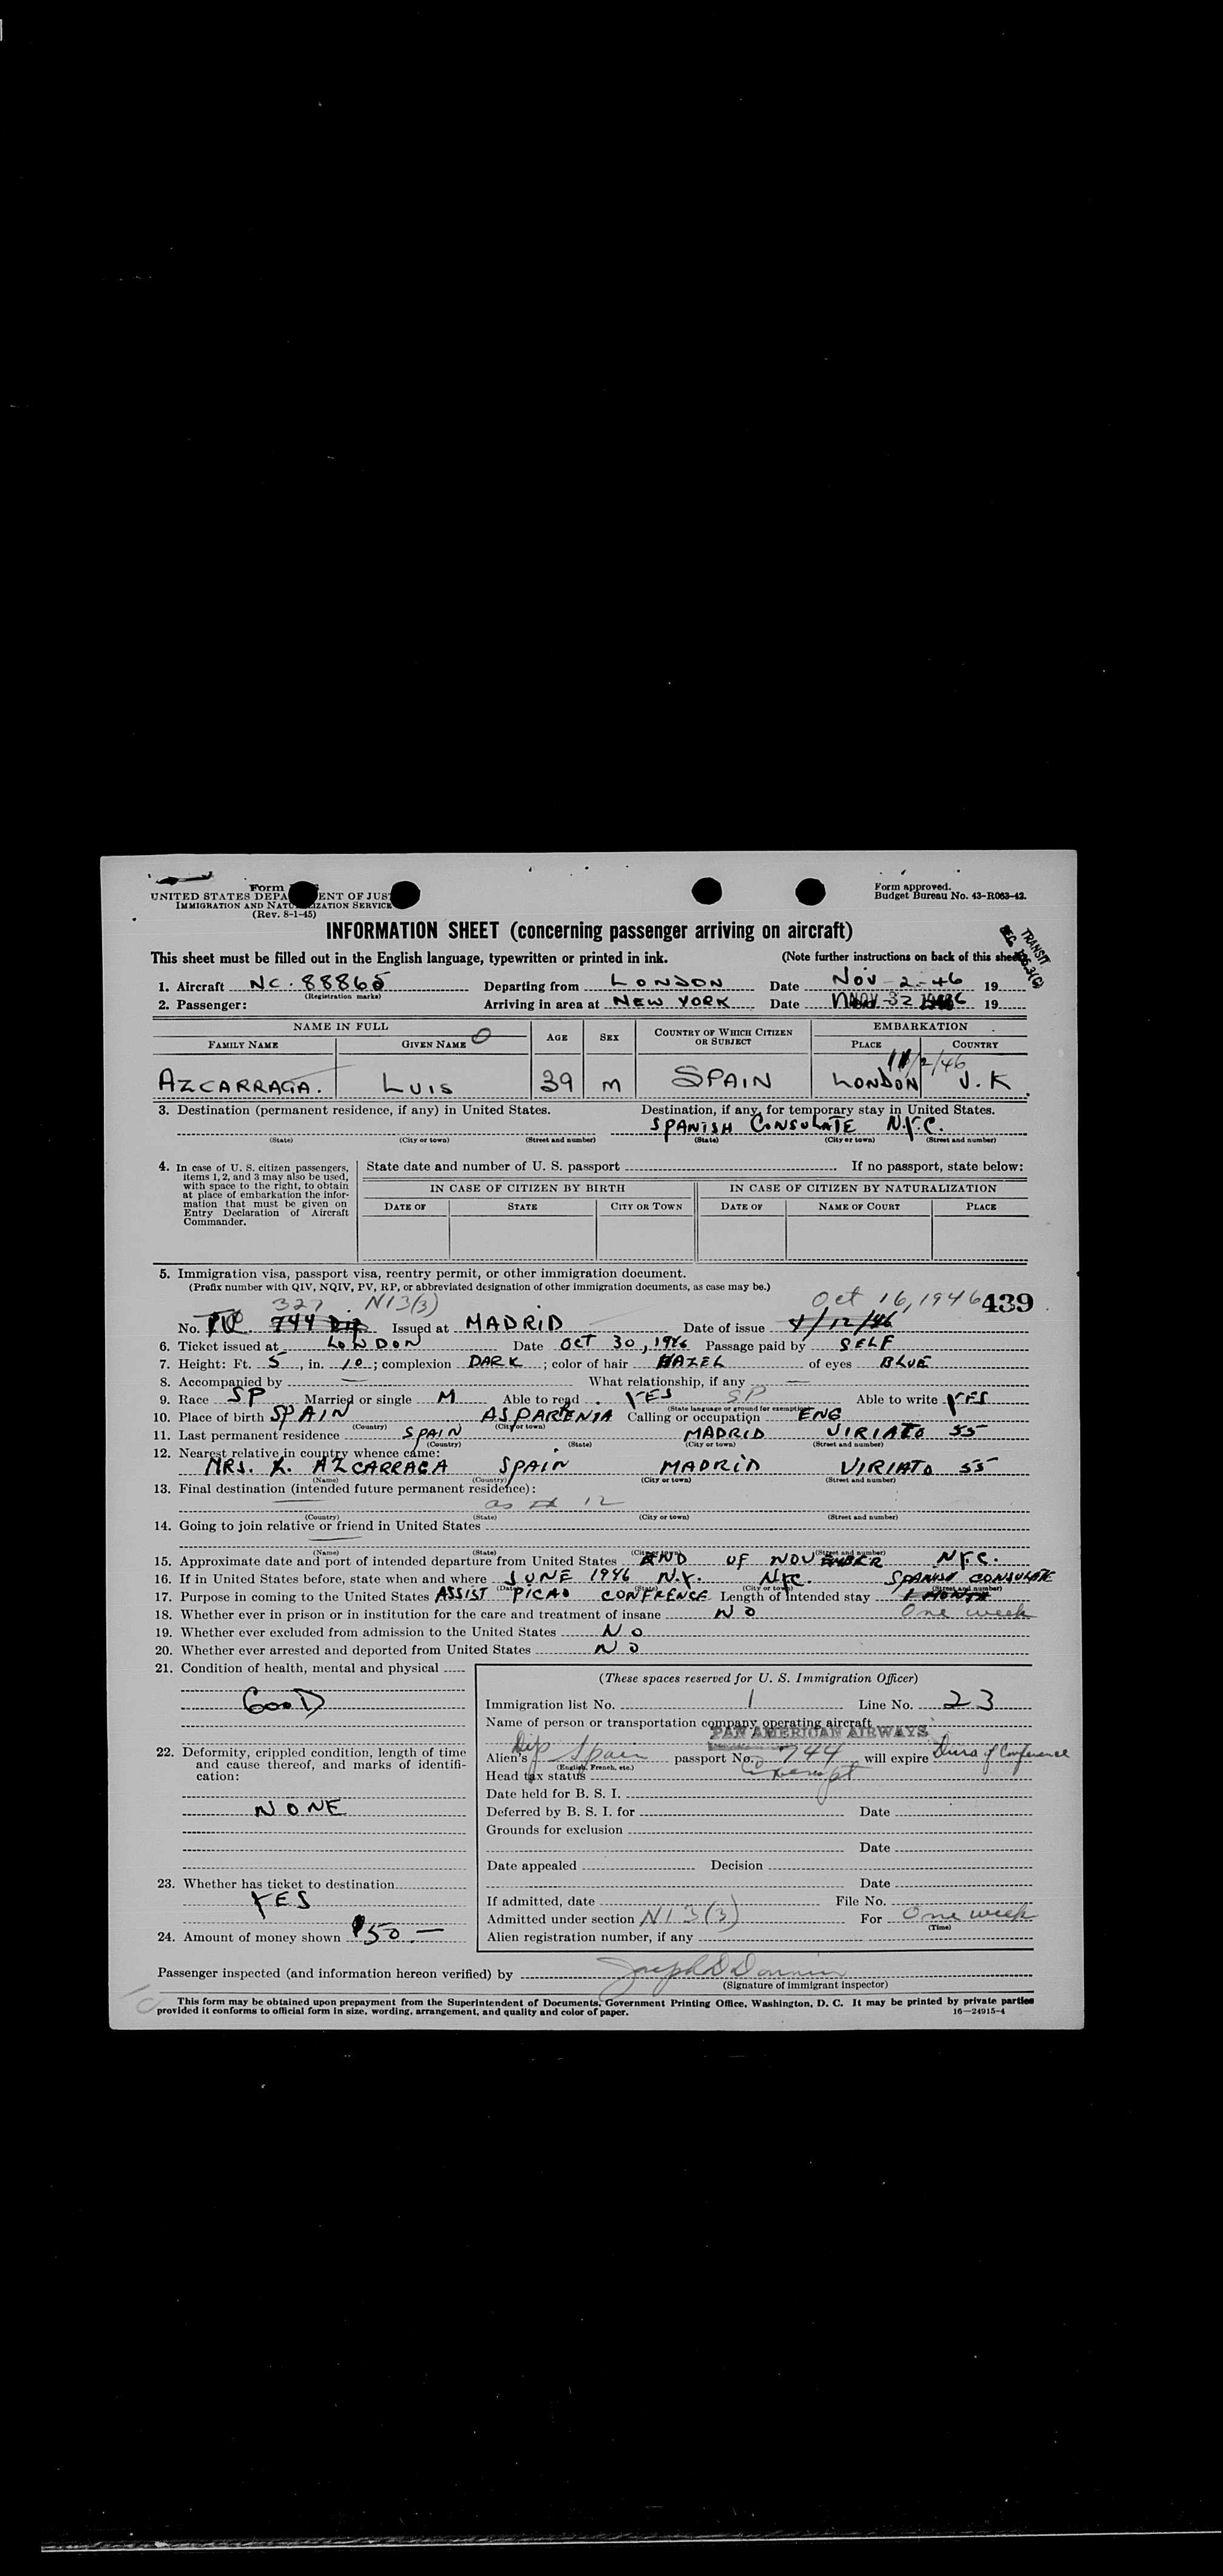 Form
UNITED STATES DEPA ENT OF JUS
IMMIGRATION AND NATU IZATION SERVICE
(Rev. 8-1-45)
Form approved.
Budget Bureau No. 43-R063-42.
INFORMATION SHEET (concerning passenger arriving on aircraft)
TRANSIT
This sheet must be filled out in the English language, typewritten or printed in ink. (Note further instructions on back of this sheet)
1. Aircraft NC. 88865 Departing from LONDON Date NOV-2-46 19
(Registration marks)
2. Passenger: Arriving in area at NEW YORK Date 19
NAME IN FULL AGE SEX COUNTRY OF WHICH CITIZEN OR SUBJECT EMBARKATION
FAMILY NAME GIVEN NAME PLACE COUNTRY
11/2/46
AZCARRAGA. LUIS 39 M SPAIN LONDON U.K.
3. Destination (permanent residence, if any) in United States. Destination, if any, for temporary stay in United States.
SPANISH CONSULATE N.Y.C.
(State) (City or town) (Street and number) (State) (City or town) (Street and number)
4. In case of U. S. citizen passengers, items 1, 2, and 3 may also be used, with space to the right, to obtain at place of embarkation the information that must be given on Entry Declaration of Aircraft Commander.
State date and number of U. S. passport If no passport, state below:
IN CASE OF CITIZEN BY BIRTH IN CASE OF CITIZEN BY NATURALIZATION
DATE OF STATE CITY OR TOWN DATE OF NAME OF COURT PLACE
5. Immigration visa, passport visa, reentry permit, or other immigration document.
(Prefix number with QIV, NQIV, PV, RP, or abbreviated designation of other immigration documents, as case may be.)
327 N13(3) Oct 16, 1946 439
No. 744 Dip Issued at MADRID Date of issue 4/12/46
6. Ticket issued at LONDON Date OCT 30, 1946 Passage paid by SELF
7. Height: Ft. 5, in. 10; complexion DARK; color of hair HAZEL of eyes BLUE
8. Accompanied by — What relationship, if any —
9. Race SP Married or single M Able to read YES SP Able to write YES
(State language or ground for exemption)
10. Place of birth SPAIN ASPARENIA Calling or occupation ENG
(Country) (City or town)
11. Last permanent residence SPAIN MADRID VIRIATO 55
(Country) (State) (City or town) (Street and number)
12. Nearest relative in country whence came:
MRS. X. AZCARRAGA SPAIN MADRID VIRIATO 55
(Name) (Country) (City or town) (Street and number)
13. Final destination (intended future permanent residence):
as 12
(Country) (State) (City or town) (Street and number)
14. Going to join relative or friend in United States
(Name) (State) (City or town) (Street and number)
15. Approximate date and port of intended departure from United States END OF NOVEMBER N.Y.C.
16. If in United States before, state when and where JUNE 1946 N.Y. NYC. SPANISH CONSULATE
(Date) (State) (City or town) (Street and number)
17. Purpose in coming to the United States ASSIST PICAO CONFRENCE Length of intended stay 1 MONTH
One week
18. Whether ever in prison or in institution for the care and treatment of insane NO
19. Whether ever excluded from admission to the United States NO
20. Whether ever arrested and deported from United States NO
21. Condition of health, mental and physical
GOOD
22. Deformity, crippled condition, length of time and cause thereof, and marks of identification:
NONE
23. Whether has ticket to destination
YES
24. Amount of money shown $50.—
(These spaces reserved for U. S. Immigration Officer)
Immigration list No. 1 Line No. 23
Name of person or transportation company operating aircraft
PAN AMERICAN AIRWAYS
Alien's Dip Spain passport No. 744 will expire Dura of Conference
(English, French, etc.)
Head tax status Exempt
Date held for B. S. I.
Deferred by B. S. I. for Date
Grounds for exclusion
Date
Date appealed Decision
Date
If admitted, date File No.
Admitted under section N13(3) For One week
(Time)
Alien registration number, if any
Passenger inspected (and information hereon verified) by Joseph D
(Signature of immigrant inspector)
This form may be obtained upon prepayment from the Superintendent of Documents, Government Printing Office, Washington, D. C. It may be printed by private parties
provided it conforms to official form in size, wording, arrangement, and quality and color of paper. 16—24915-4